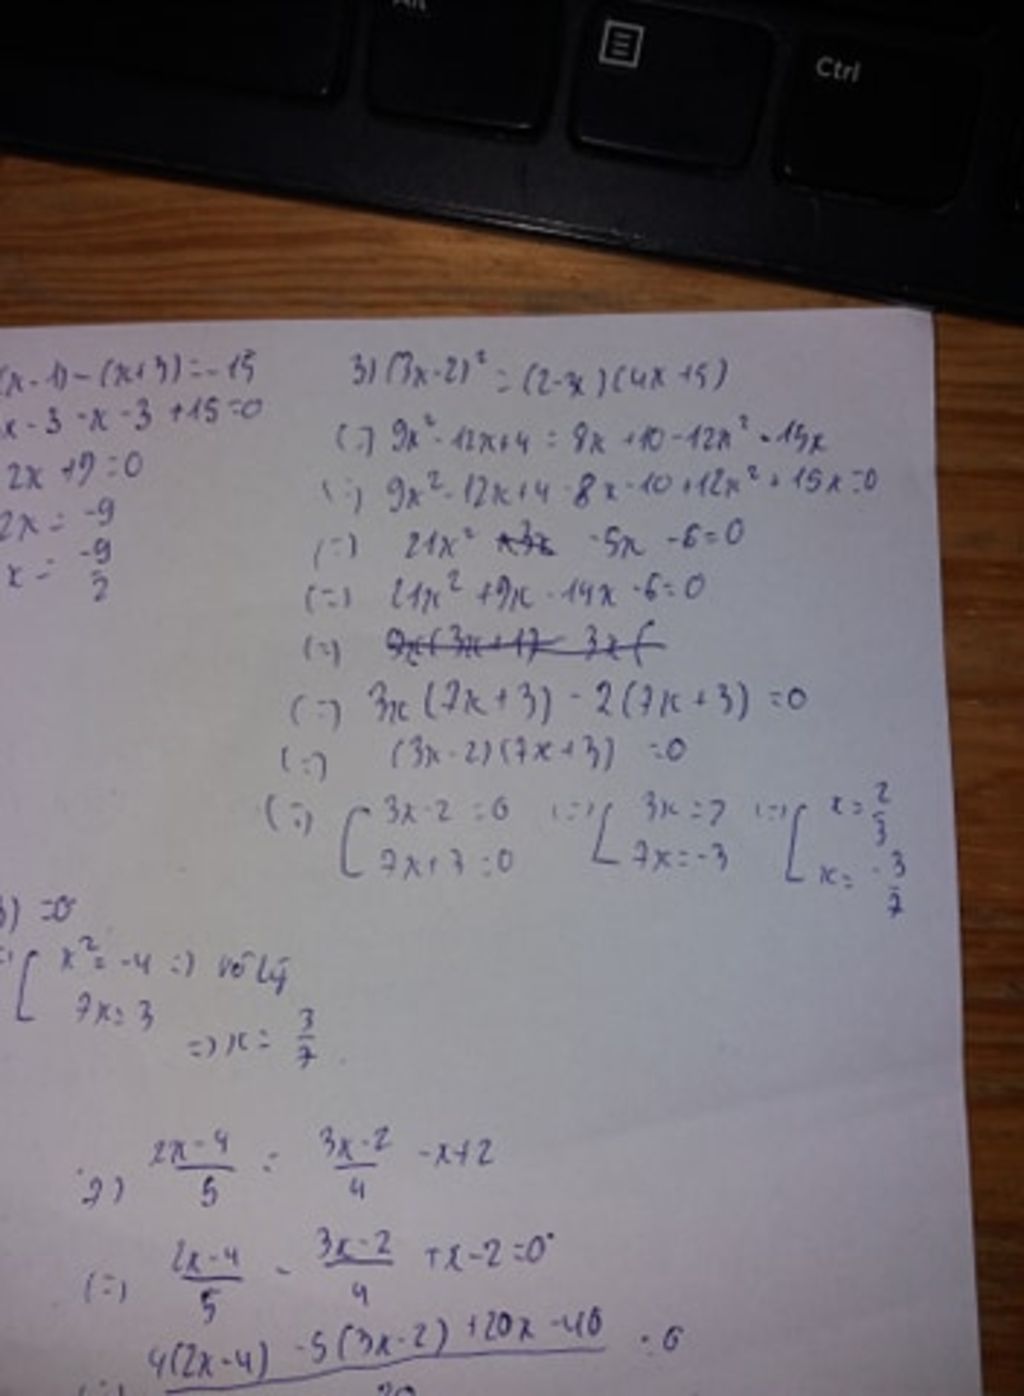 Alt
Ctrl
(x-1)-(x+3)=-15
x-3-x-3+15=0
2x+9=0
2x=-9
x=-9/2
3) (3x-2)² = (2-3x)(4x+5)
(=) 9x²-12x+4 = 8x+10-12x²-15x
(=) 9x²-12x+4-8x-10+12x²+15x=0
(=) 21x² -5x -6=0
(=) 21x²+9x-14x-6=0
(=)
(=) 3x(7x+3)-2(7x+3)=0
(=) (3x-2)(7x+3)=0
(=) [3x-2=0 (=) [3x=2 (=) [x=2/3
7x+3=0 7x=-3 x=-3/7
3)=0
[x²=-4 =) vô lý
7x=3
=) x=3/7
2) 2x-4/5 = 3x-2/4 -x+2
(=) 2x-4/5 - 3x-2/4 +x-2=0
4(2x-4) -5(3x-2)+20x-40 =0
20